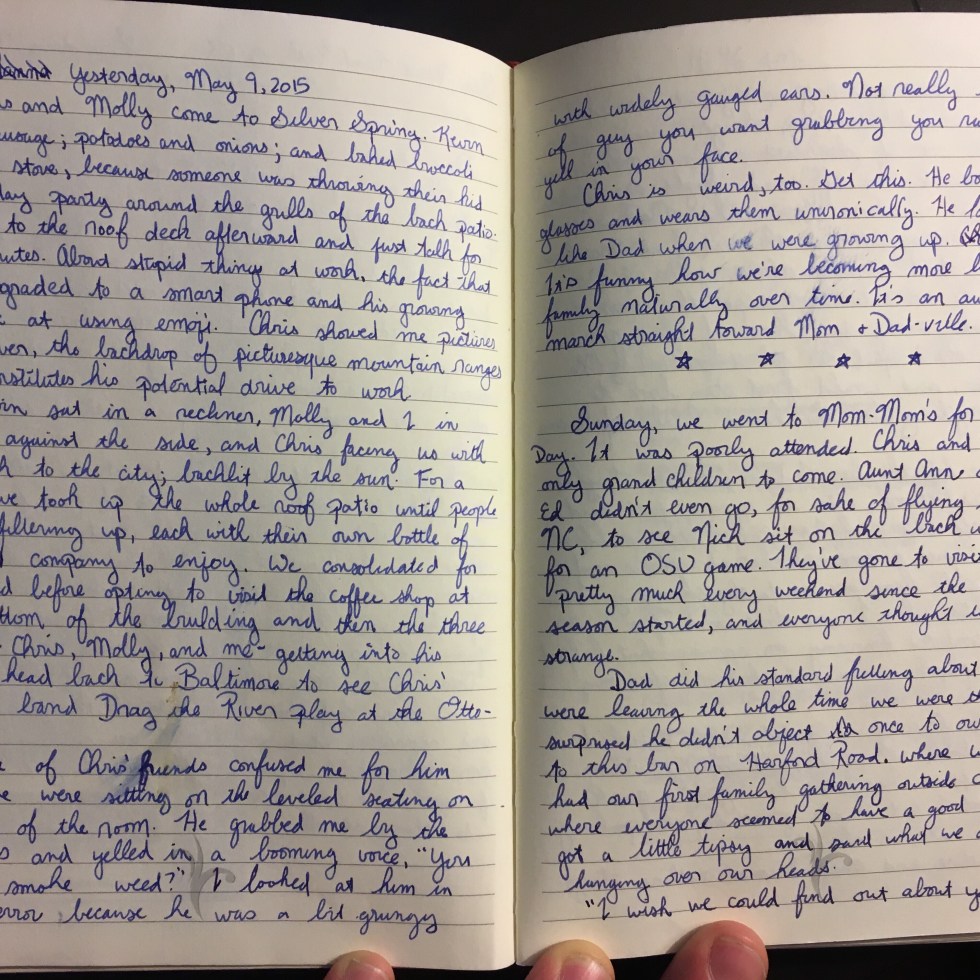 Yesterday, May 9, 2015
and Molly come to Silver Spring. Kevin
; potatoes and onions; and baked broccoli
stove, because someone was throwing their kid
party around the grills of the back patio.
to the roof deck afterward and just talk for
About stupid things at work, the fact that
to a smart phone and his growing
at using emoji. Chris showed me pictures
the backdrop of picturesque mountain ranges
his potential drive to work
sat in a recliner, Molly and I in
against the side, and Chris facing us with
to the city; backlit by the sun. For a
took up the whole roof patio until people
filtering up, each with their own bottle of
company to enjoy. We consolidated for
before opting to visit the coffee shop at
of the building and then the three
Chris, Molly, and me- getting into his
head back to Baltimore to see Chris'
band Drag the River play at the Otto-
of Chris' friends confused me for him
were sitting on the leveled seating on
of the room. He grabbed me by the
and yelled in a booming voice, "You
smoke weed?" I looked at him in
because he was a bit grungy
with widely gauged ears. Not really
of guy you want grabbing you
yell in your face.
Chris is weird, too. Get this. He
glasses and wears them unironically. He
like Dad when we were growing up.
It's funny how we're becoming more
family naturally over time. It's an
march straight toward Mom + Dad-ville.
Sunday, we went to Mom-Mom's for
Day. It was poorly attended. Chris and
only grand children to come. Aunt Ann
Ed didn't even go, for sake of flying
NC, to see Nick sit on the back
for an OSU game. They've gone to
pretty much every weekend since the
season started, and everyone thought
strange.
Dad did his standard fulling about
were leaving the whole time we were
surprised he didn't object once to
to this bar on Harford Road. where
had our first family gathering outside
where everyone seemed to have a good
got a little tipsy and said what we
hanging over our heads.
"I wish we could find out about